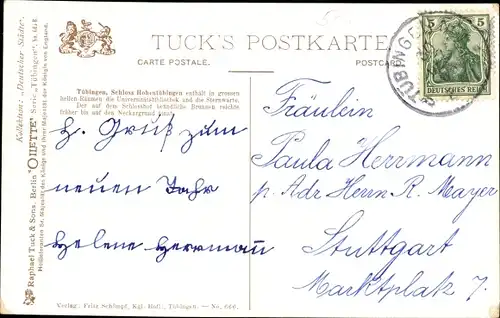 TUCK'S POSTKARTE
CARTE POSTALE.
POSTCARD
Tübingen, Schloss Hohentübingen enthält in grossen
hellen Räumen die Universitätsbibliothek und die Sternwarte.
Der auf dem Schlosshof befindliche Brunnen reichte
früher bis auf den Neckargrund hinab.
5 5
DEUTSCHES REICH
TÜB
H. Gruß zum
neuen Jahr
Helene Herrmann
Fräulein
Paula Herrmann
p. Adr Herrn R. Mayer
Stuttgart
Marktplatz 7.
Verlag: Fritz Schimpf, Kgl. Hofl., Tübingen. — No. 666.
Kollektion: „Deutscher Städte“.
Raphael Tuck & Sons, Berlin "OILETTE" Serie „Tübingen“
Hoflieferanten Sr. Majestät des Königs und Ihrer Majestät der Königin von England.